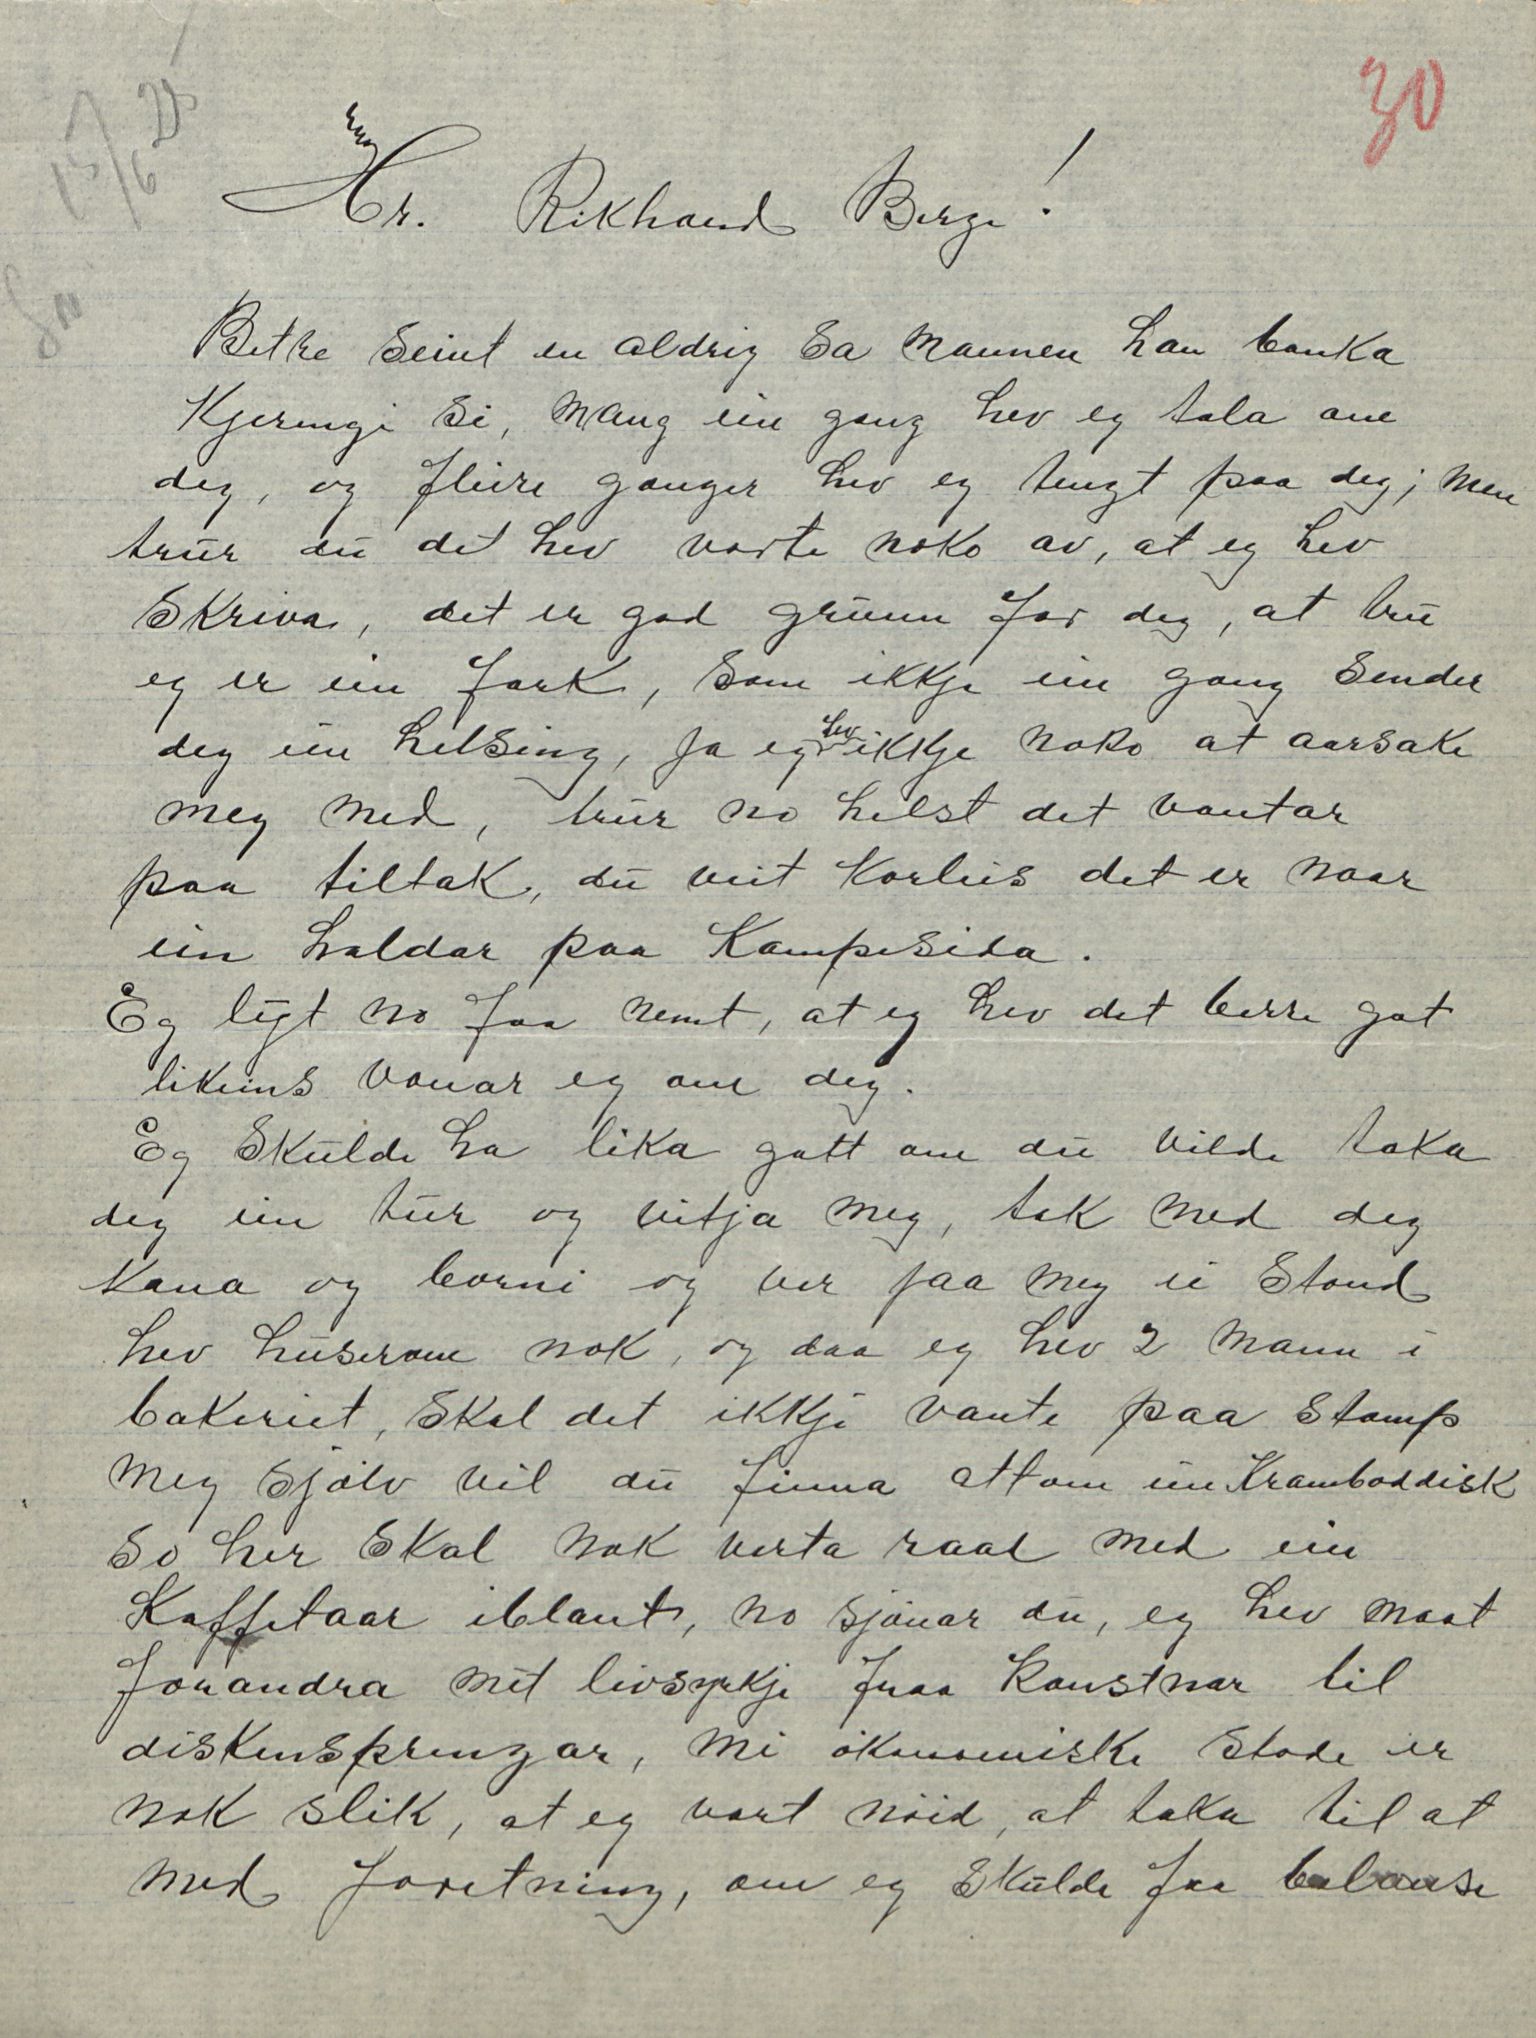 30
15/6 25
Hr. Rikhard Berge!
Betre seint en aldrig sa mannen han banka
Kjeringi si, mang ein gong hev eg tala om
deg, og fleire gonger hev eg tengt paa deg; men
trur du de hev vorte noko av, at eg hev
skriva, det er god grunn for deg, at tru
eg er ein fark, som ikkje ein gong sender
deg ein helsing, ja eg hev ikkje noko at aarsake
meg med, trur no helst det vantar
paa tiltak, du veit korleis det er naar
ein haldar paa Kampesida.
Eg lyt no faa nemt, at eg hev det berre got
likeins vonar eg om deg.
Eg skulde ha lika gott om du vilde taka
deg ein tur og vitja meg, tak med deg
kana og borni og ver faa meg ei stond
hev huserom nok, og daa eg hev 2 mann i
bakeriet, skal det ikkje vante paa stomp
meg sjölv vil du finna attom ein Kramboddisk
so her skal nok verta raad med ein
Kaffetaar iblant, no sjönar du, eg hev maat
forandra mit livsyrkje fraa Konstnar til
diskensprengar, mi ökonomiske stode er
nok slik, at eg vart nöid, at taka til at
med foretning, om eg skulde faa balanse